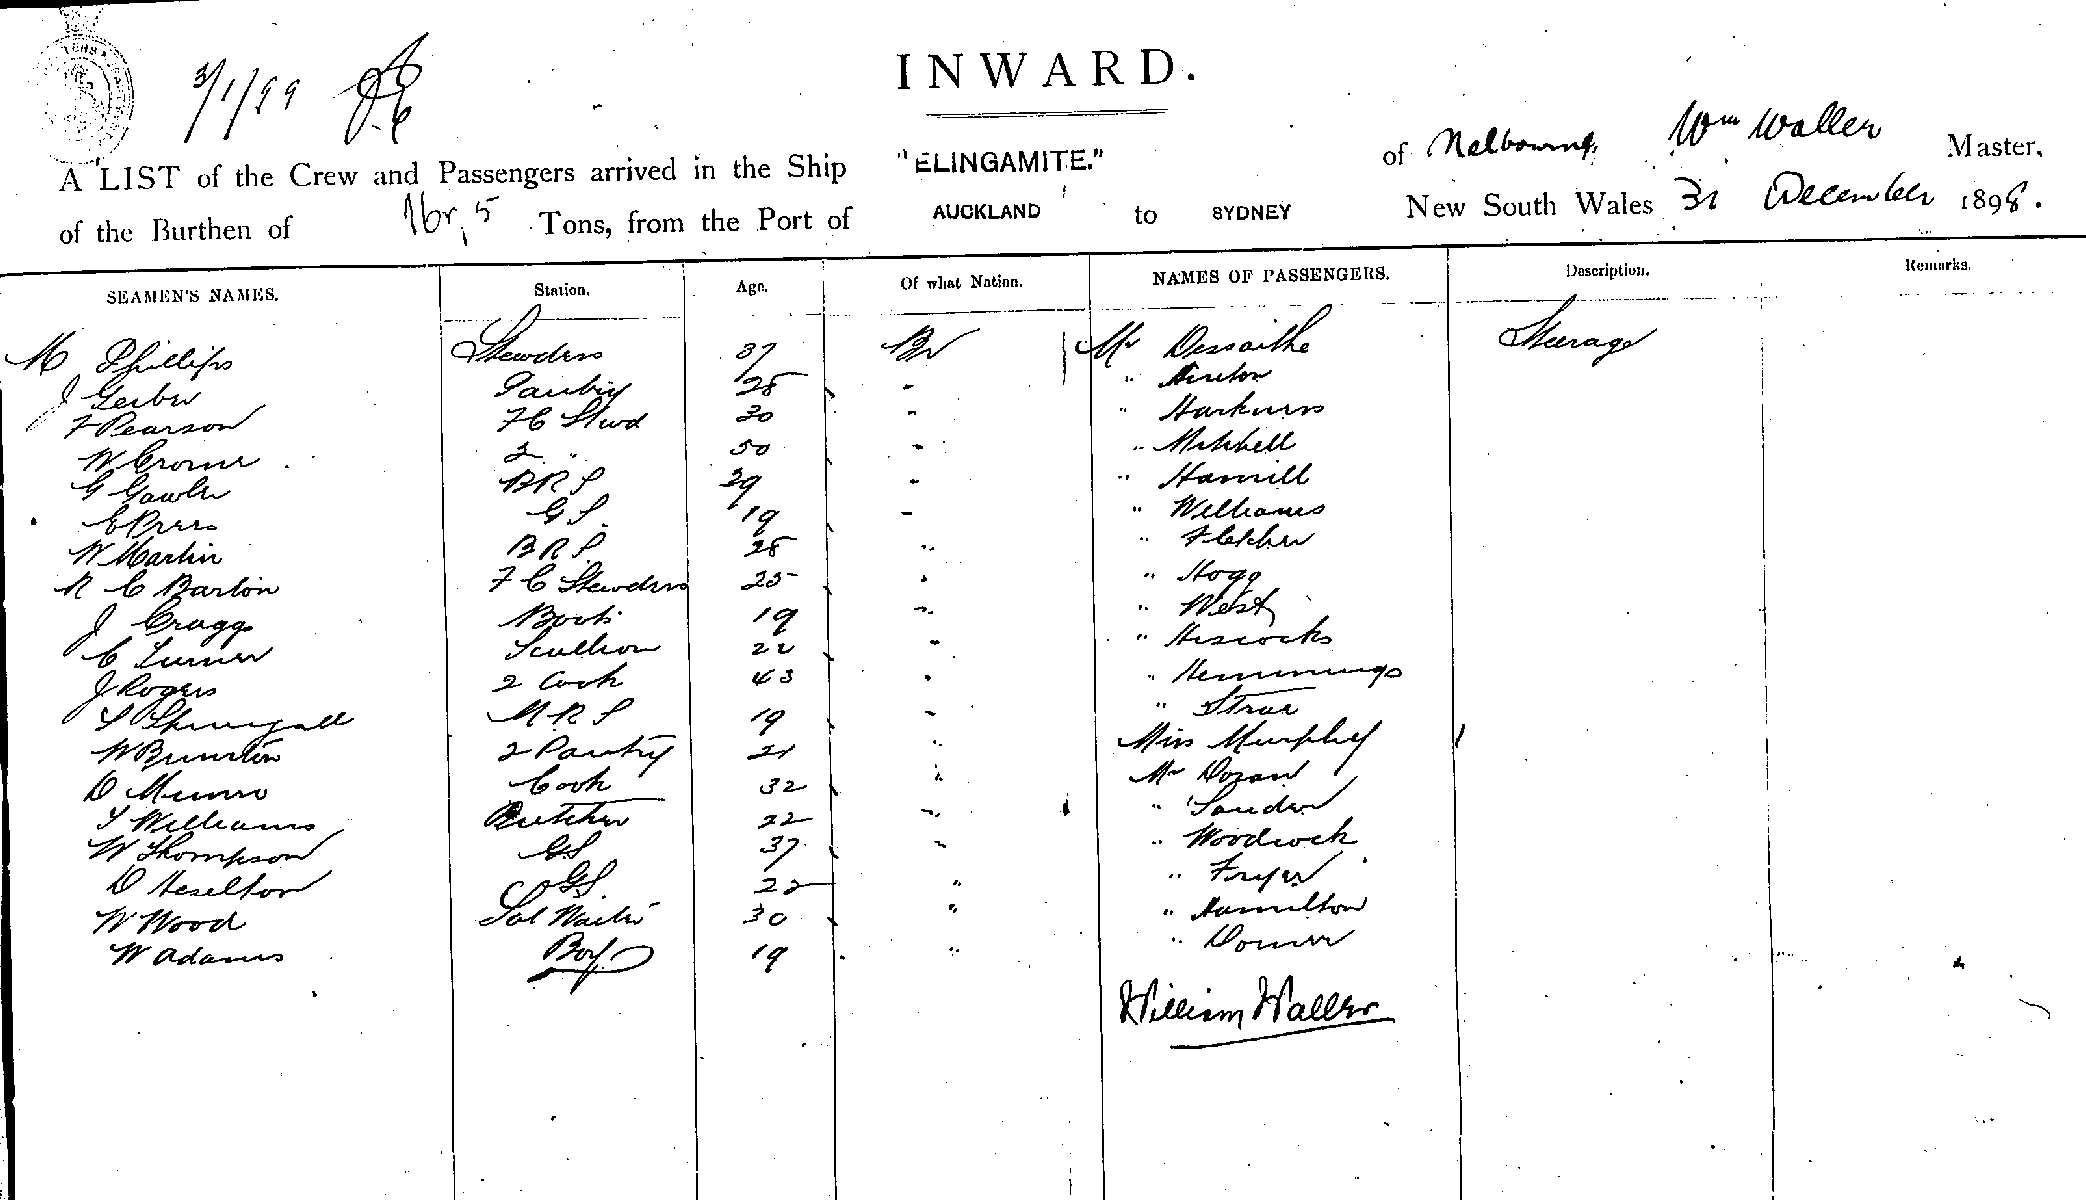 3/1/99
INWARD.
A LIST of the Crew and Passengers arrived in the Ship "ELINGAMITE." of Melbourne, Wm Waller Master,
of the Burthen of Tons, from the Port of AUCKLAND to SYDNEY New South Wales 31 December 1898.
SEAMEN'S NAMES. Station. Age. Of what Nation. NAMES OF PASSENGERS. Description. Remarks.
M Phillips Stewdess 37 Br Mr Steerage
J Gerber Pantry 28 "
F Pearson FC Stwd 30 " " Harkness
W Cromer 2 " 50 " " Mitchell
G Gawler BRS 39 " " Hamill
E Press GS 19 " " Williams
W Martin BRS 28 " " Fletcher
C Barton FC Stewdess 25 " " Hogg
J Cragg Boots 19 " " West
C Turner Scullion 22 " " Hiscocks
J Rogers 2 Cook 43 " " Hemmings
MRS 19 " "
W 2 Pantry 21 " Miss Murphy
D Munro Cook 32 " Mr Doran
T Williams Butcher 22 "
W Thompson GS 37 " " Woodcock
D Heselton GS 22 " " Fryer
W Wood Sal Waiter 30 " " Hamilton
W Adams Boy 19 "
William Waller